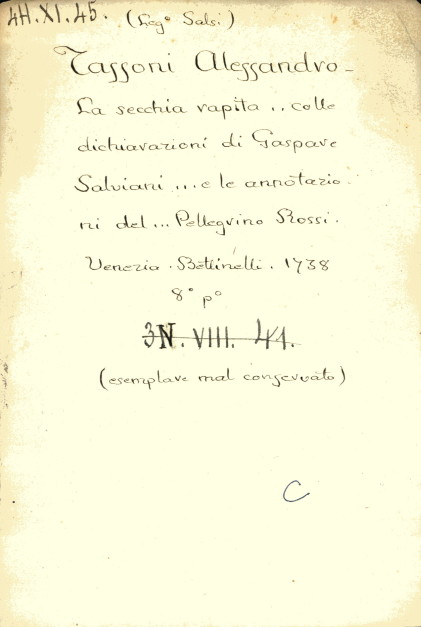 4H.XI.45. (Leg° Salsi)
Tassoni Alessandro -
La secchia rapita .. colle
dichiarazioni di Gaspare
Salviani ... e le annotazio-
ni del ... Pellegrino Rossi.
Venezia. Bettinelli. 1738
8° p°
3N. VIII. 41.
(esemplare mal conservato)
C